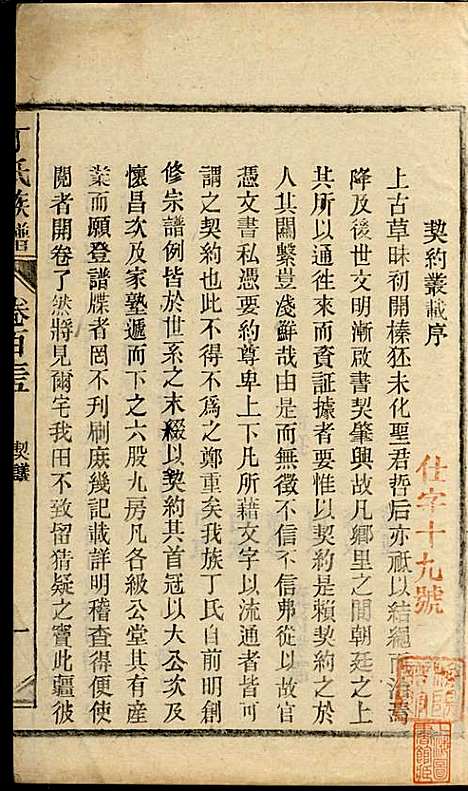 契約叢載序
上古草昧初開榛狉未化聖君哲后亦祗以結繩而治焉
降及後世文明漸啟書契肇興故凡鄉里之間朝廷之上
其所以通徃來而資証據者罔不以契約是賴契約之於
人其關繫豈淺鮮哉由是而無徵不信不信弗從以故官
憑文書私憑要約尊卑上下凡所藉文字以流通者皆可
謂之契約也不得不為之鄭重矣我族丁氏自前明創
修宗譜例皆於世系之末綴以契約其首冠以大公次及
懷昌次及家塾遞而下之六股九房凡各級公堂其有產
業而願登譜牒者罔不刊刷庶幾記載詳明稽查得便使
閱者開卷了然將見爾宅我田不致留猜疑之竇此疆彼
丁氏族譜
卷百三
契議
一
仕字十九號